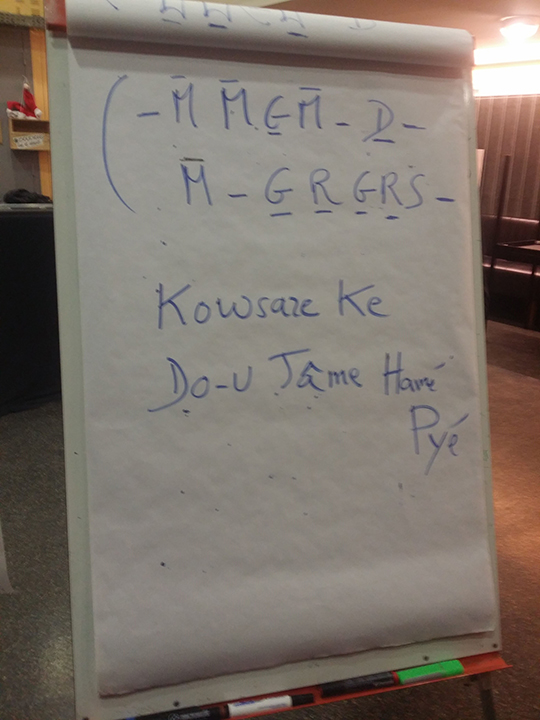 ( - M̅ M̅ G̲ M̅ - D̲ -
M̅ - G̲ R̲ G̲ R̲ Ṡ -
Kowsare Ke
Ḍo-u Jâme Hamé
Pyé